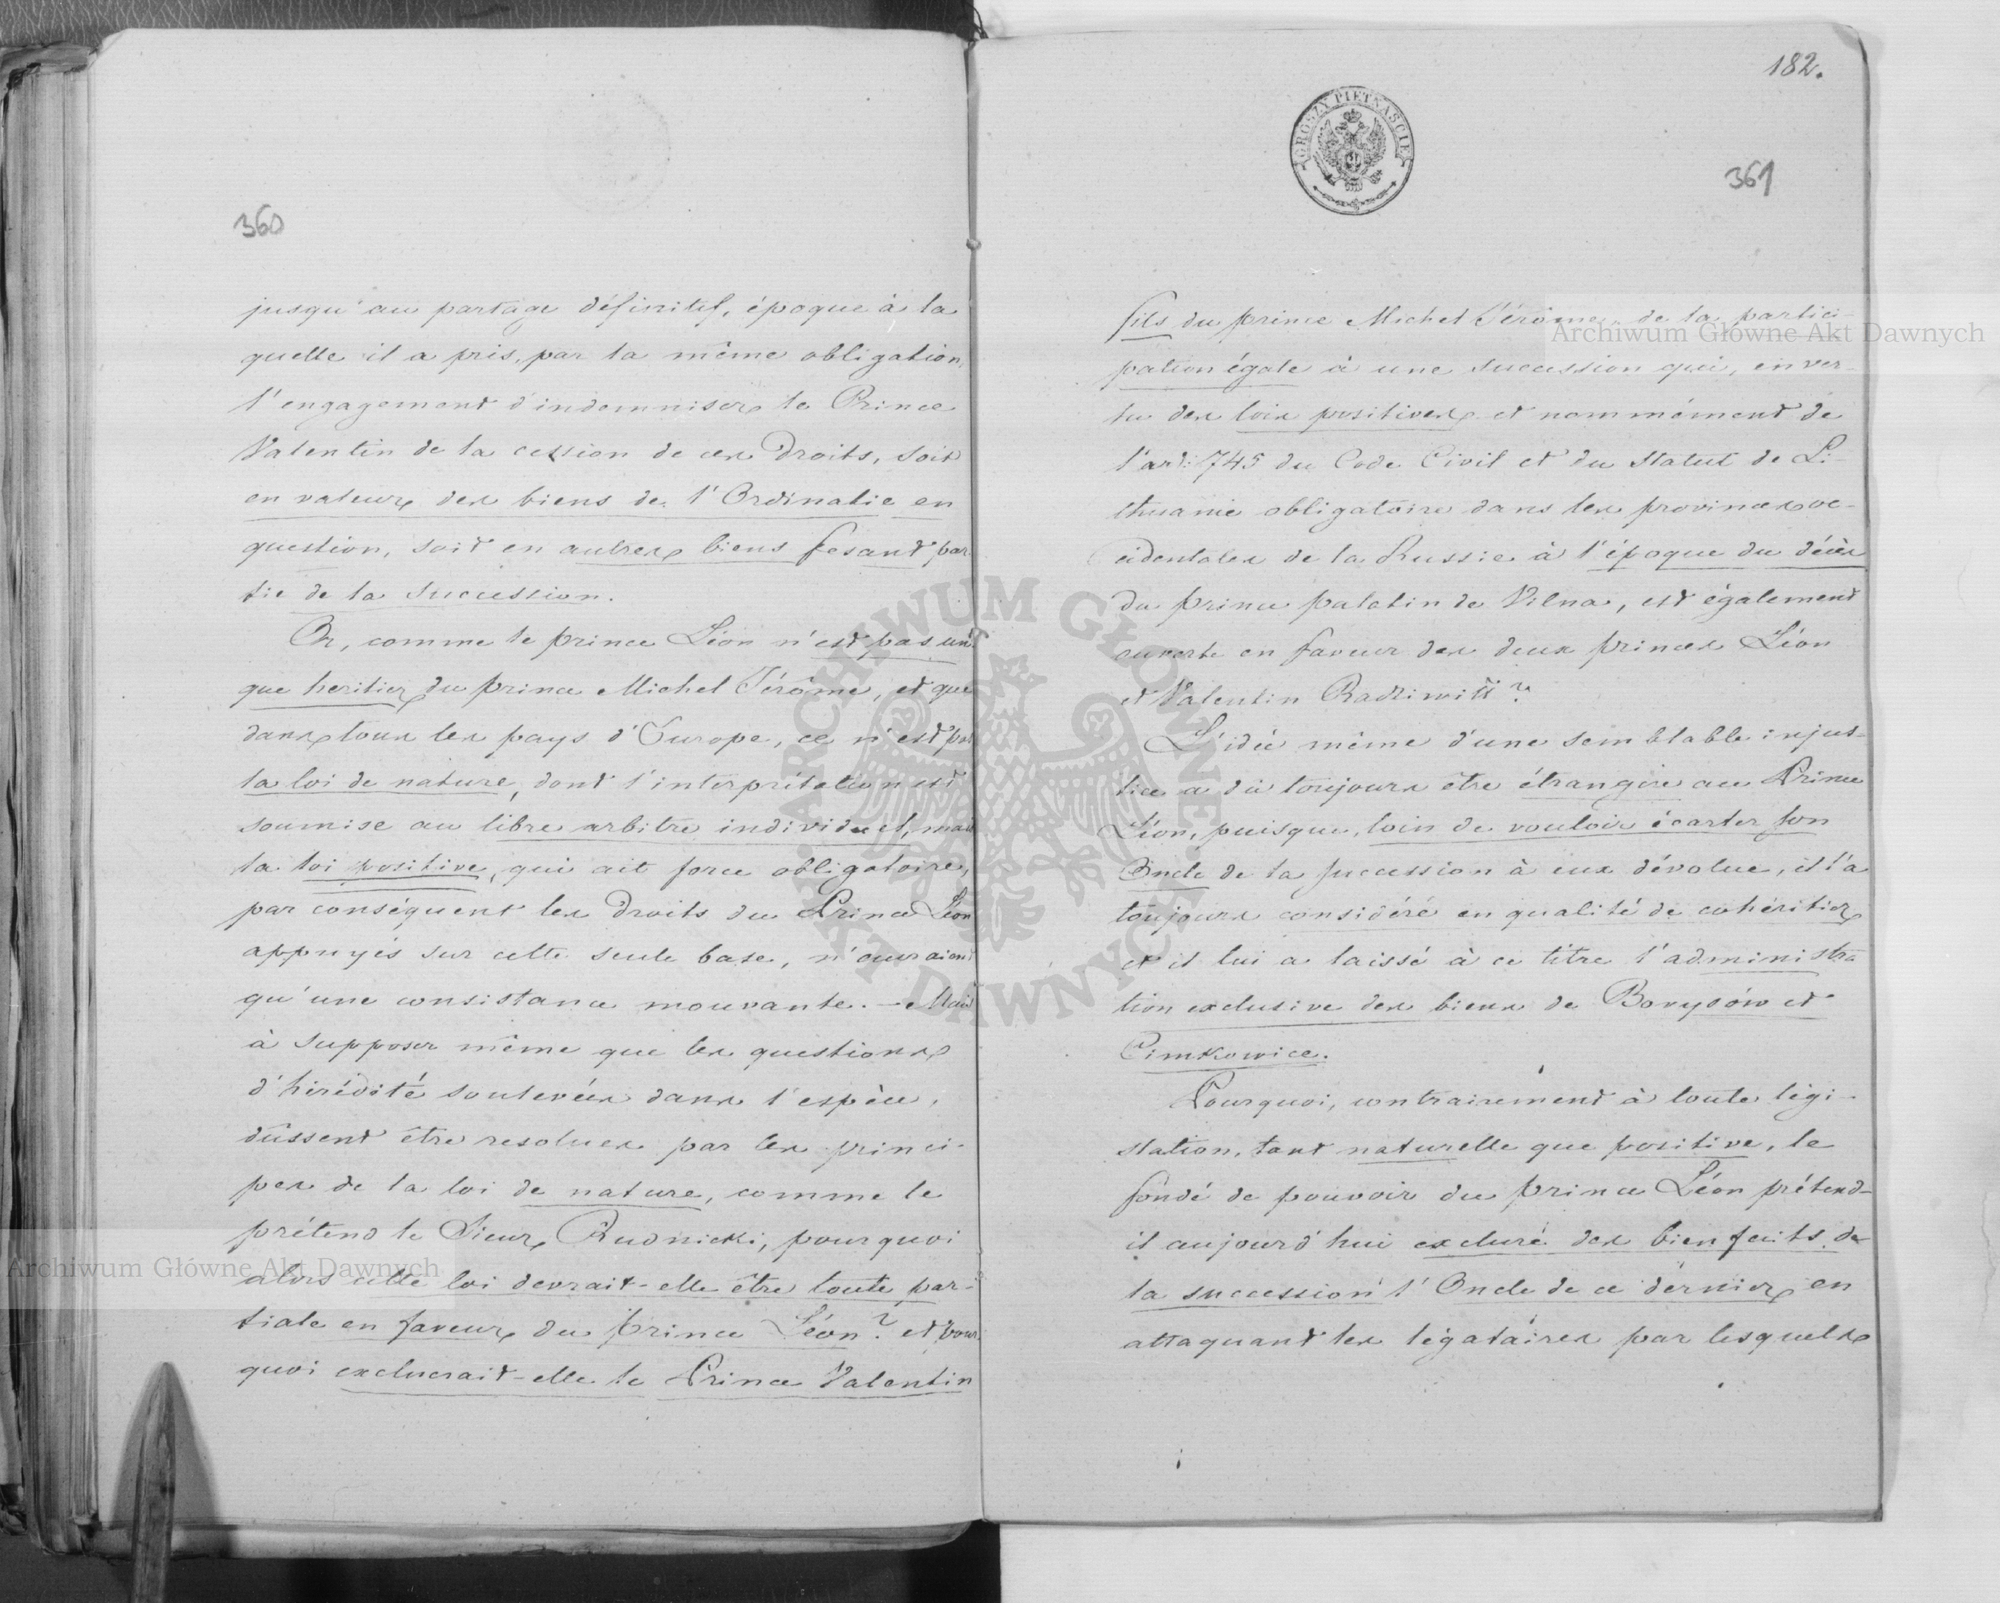 360
jusqu'au partage définitif, époque à la
quelle il a pris, par la même obligation,
l'engagement d'indemniser le Prince
Valentin de la cession de ces Droits, soit
en valeur des biens de l'Ordinatie en
question, soit en autres biens fesant par
tie de la Succession.
Or, comme le prince Léon n'est pas uni
que heritier du prince Michel Jérôme, et que
dans tous les pays d'Europe, ce n'est pas
la loi de nature, dont l'interprétation est
soumise au libre arbitre individuel, mais
la loi positive, qui ait force obligatoire,
par conséquent les Droits du Prince Léon
appuyés sur cette seule base, n'auraient
qu'une consistance mouvante. – Mais
à supposer même que les questions
d'hérédité soulevées dans l'espèce,
dûssent être resolues par les princi-
pes de la loi de nature, comme le
prétend le Sieur Rudnicki, pourquoi
alors cette loi devrait-elle être toute par-
tiale en faveur du prince Léon? et pour
quoi exclucrait-elle le Prince Valentin
182.
GROSZY PIĘTNAŚCIE
361
fils du prince Michel Jérôme, de la partici-
pation égale à une succession qui, en ver-
tu des loix positives et nommément de
l'art: 745 du Code Civil et du Statut de Li-
thuanie obligatoire dans les provinces oc-
cidentales de la Russie à l'époque du décès
du prince palatin de Vilna, est également
ouverte en faveur des deux princes Léon
et Valentin Radziwiłł?
L'idée même d'une semblable injus-
tice a dû toujours être étrangère au Prince
Léon, puisque, loin de vouloir écarter son
Oncle de la succession à eux dévolue, il l'a
toujours considéré en qualité de cohéritier
et il lui a laissé à ce titre l'administra
tion exclusive des biens de Borysów et
Cimkowice.
Pourquoi, contrairement à toute légi-
slation, tant naturelle que positive, le
fondé de pouvoir du prince Léon prétend-
il aujourd'hui exclure des bienfaits de
la succession l'Oncle de ce dernier en
attaquant les légataires par lesquels
Archiwum Główne Akt Dawnych
Archiwum Główne Akt Dawnych
ARCHIWUM GŁÓWNE AKT DAWNYCH